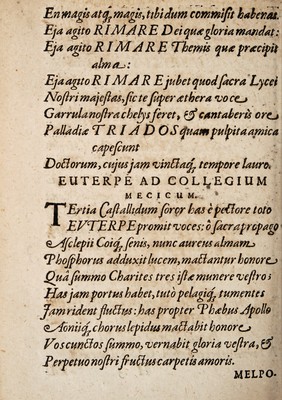 En magis atq́; magis, tibi dum commisit habenas.
Eja agito RIMARE Dei quæ gloria mandat:
Eja agito RIMARE Themis quæ præcipit
alma:
Eja agito RIMARE jubet quod sacra Lycei
Nostri majestas, sic te super æthera voce
Garrula nostra chelys feret, & cantaberis ore
Palladiæ TRIADOS quam pulpita amica
capescunt
Doctorum, cujus jam vinctaq́, tempore lauro.
EUTERPE AD COLLEGIUM
MECICUM.
TErtia Castallidum soror has è pectore toto
EUTERPE promit voces: ô sacra propago
Asclepii Coiq́, senis, nunc aureus almam
Phosphorus adduxit lucem, mactantur honore
Quâ summo Charites tres istæ munere vestro:
Has jam portus habet, tutò pelagiq́, tumentes
Jam rident fluctus: has propter Phæbus Apollo
Aoniiq́, chorus lepidus mactabit honore
Vos cunctos summo, vernabit gloria vestra, &
Perpetuo nostri fructus carpetis amoris.
MELPO-